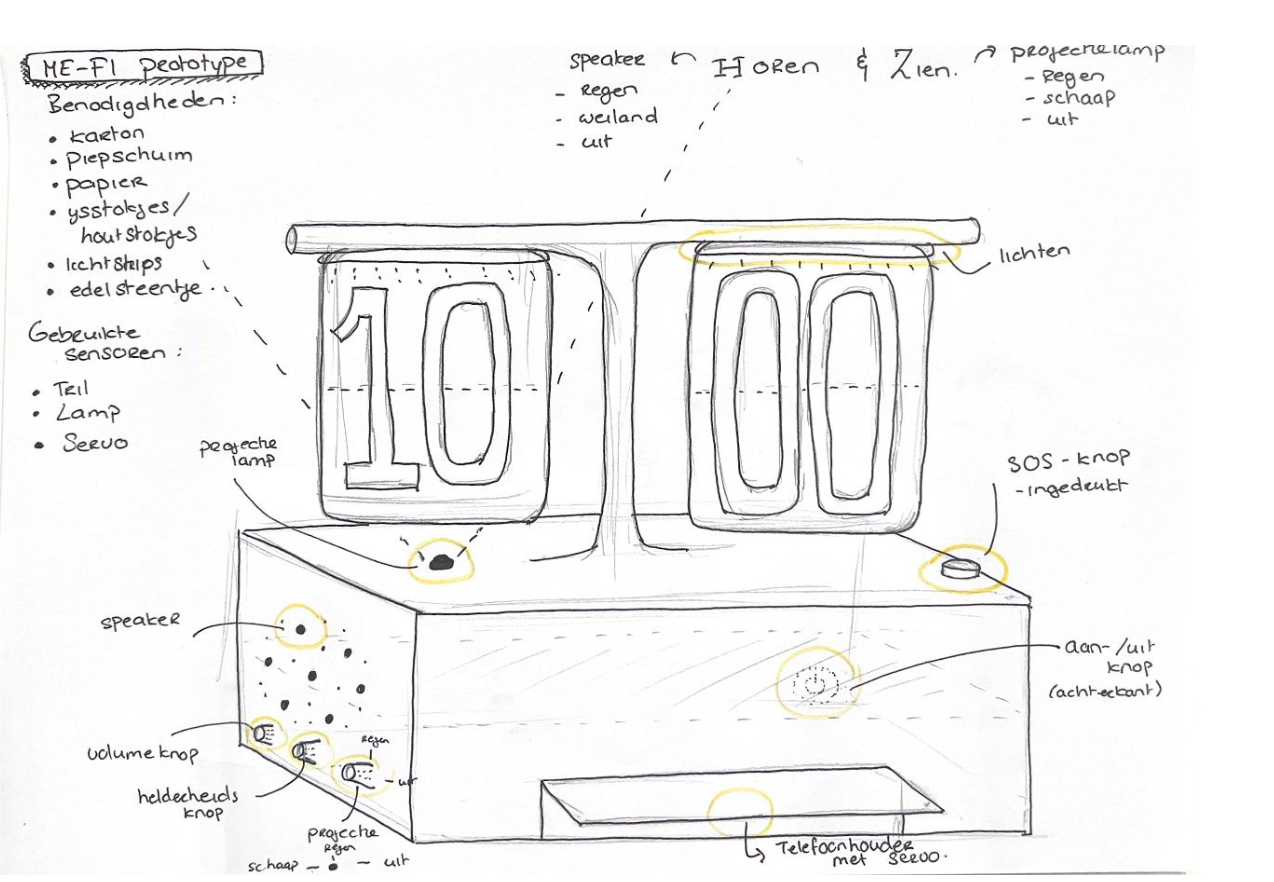 ME-FI prototype
Benodigdheden:
• karton
• piepschuim
• papier
• ysstokjes/
houtstokjes
• lichtstrips
• edelsteentje
Gebruikte
sensoren:
• Tril
• Lamp
• Servo
speaker
- regen
- weiland
- uit
Horen & Zien.
projectielamp
- Regen
- schaap
- uit
10
00
lichten
projectie
lamp
SOS-knop
- ingedrukt
speaker
aan-/uit
knop
(achterkant)
volume knop
helderheids
knop
regen
- uit
projectie
regen
schaap - • - uit
Telefoonhouder
met servo.